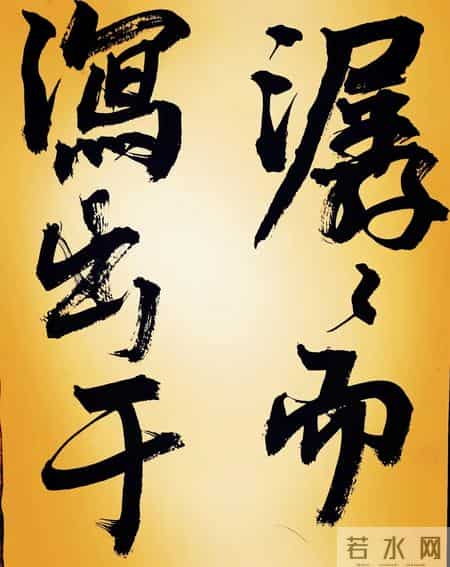 潺々而
瀉出于
若水网